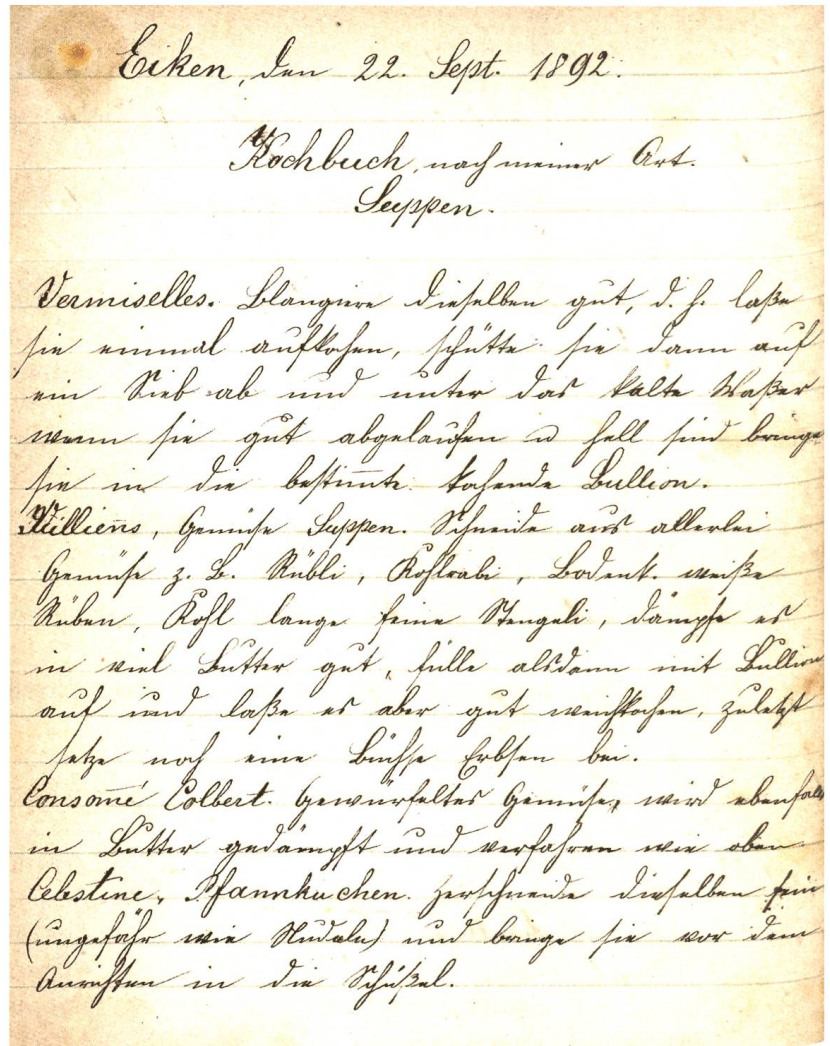 Eiken, den 22. Sept. 1892.
Kochbuch, nach meiner Art.
Suppen.
Vermiselles. Blangiere dieselben gut, d. h. laße
sie einmal aufkochen, schütte sie dann auf
ein Sieb ab und unter das kalte Waßer
wenn sie gut abgelaufen u hell sind bringe
sie in die bestim̅te kochende Bullion.
Jülliens, Gemüse Suppen. Schneide aus allerlei
Gemüse z. B. Rübli, Kohlrabi, Bodenk. weiße
Rüben, Kohl lange feine Stengeli, dämpfe es
in viel Butter gut, fülle alsdann mit Bullion
auf und laße es aber gut weichkochen, zuletzt
setze noch eine Büchse Erbsen bei.
Consom̅é Colbert. Gewürfeltes Gemüse, wird ebenfalls
in Butter gedämpft und verfahren wie oben
Celestine, Pfannkuchen. Zerschneide dieselben fein
(ungefähr wie Nudeln) und bringe sie vor dem
Anrichten in die Schüßel.